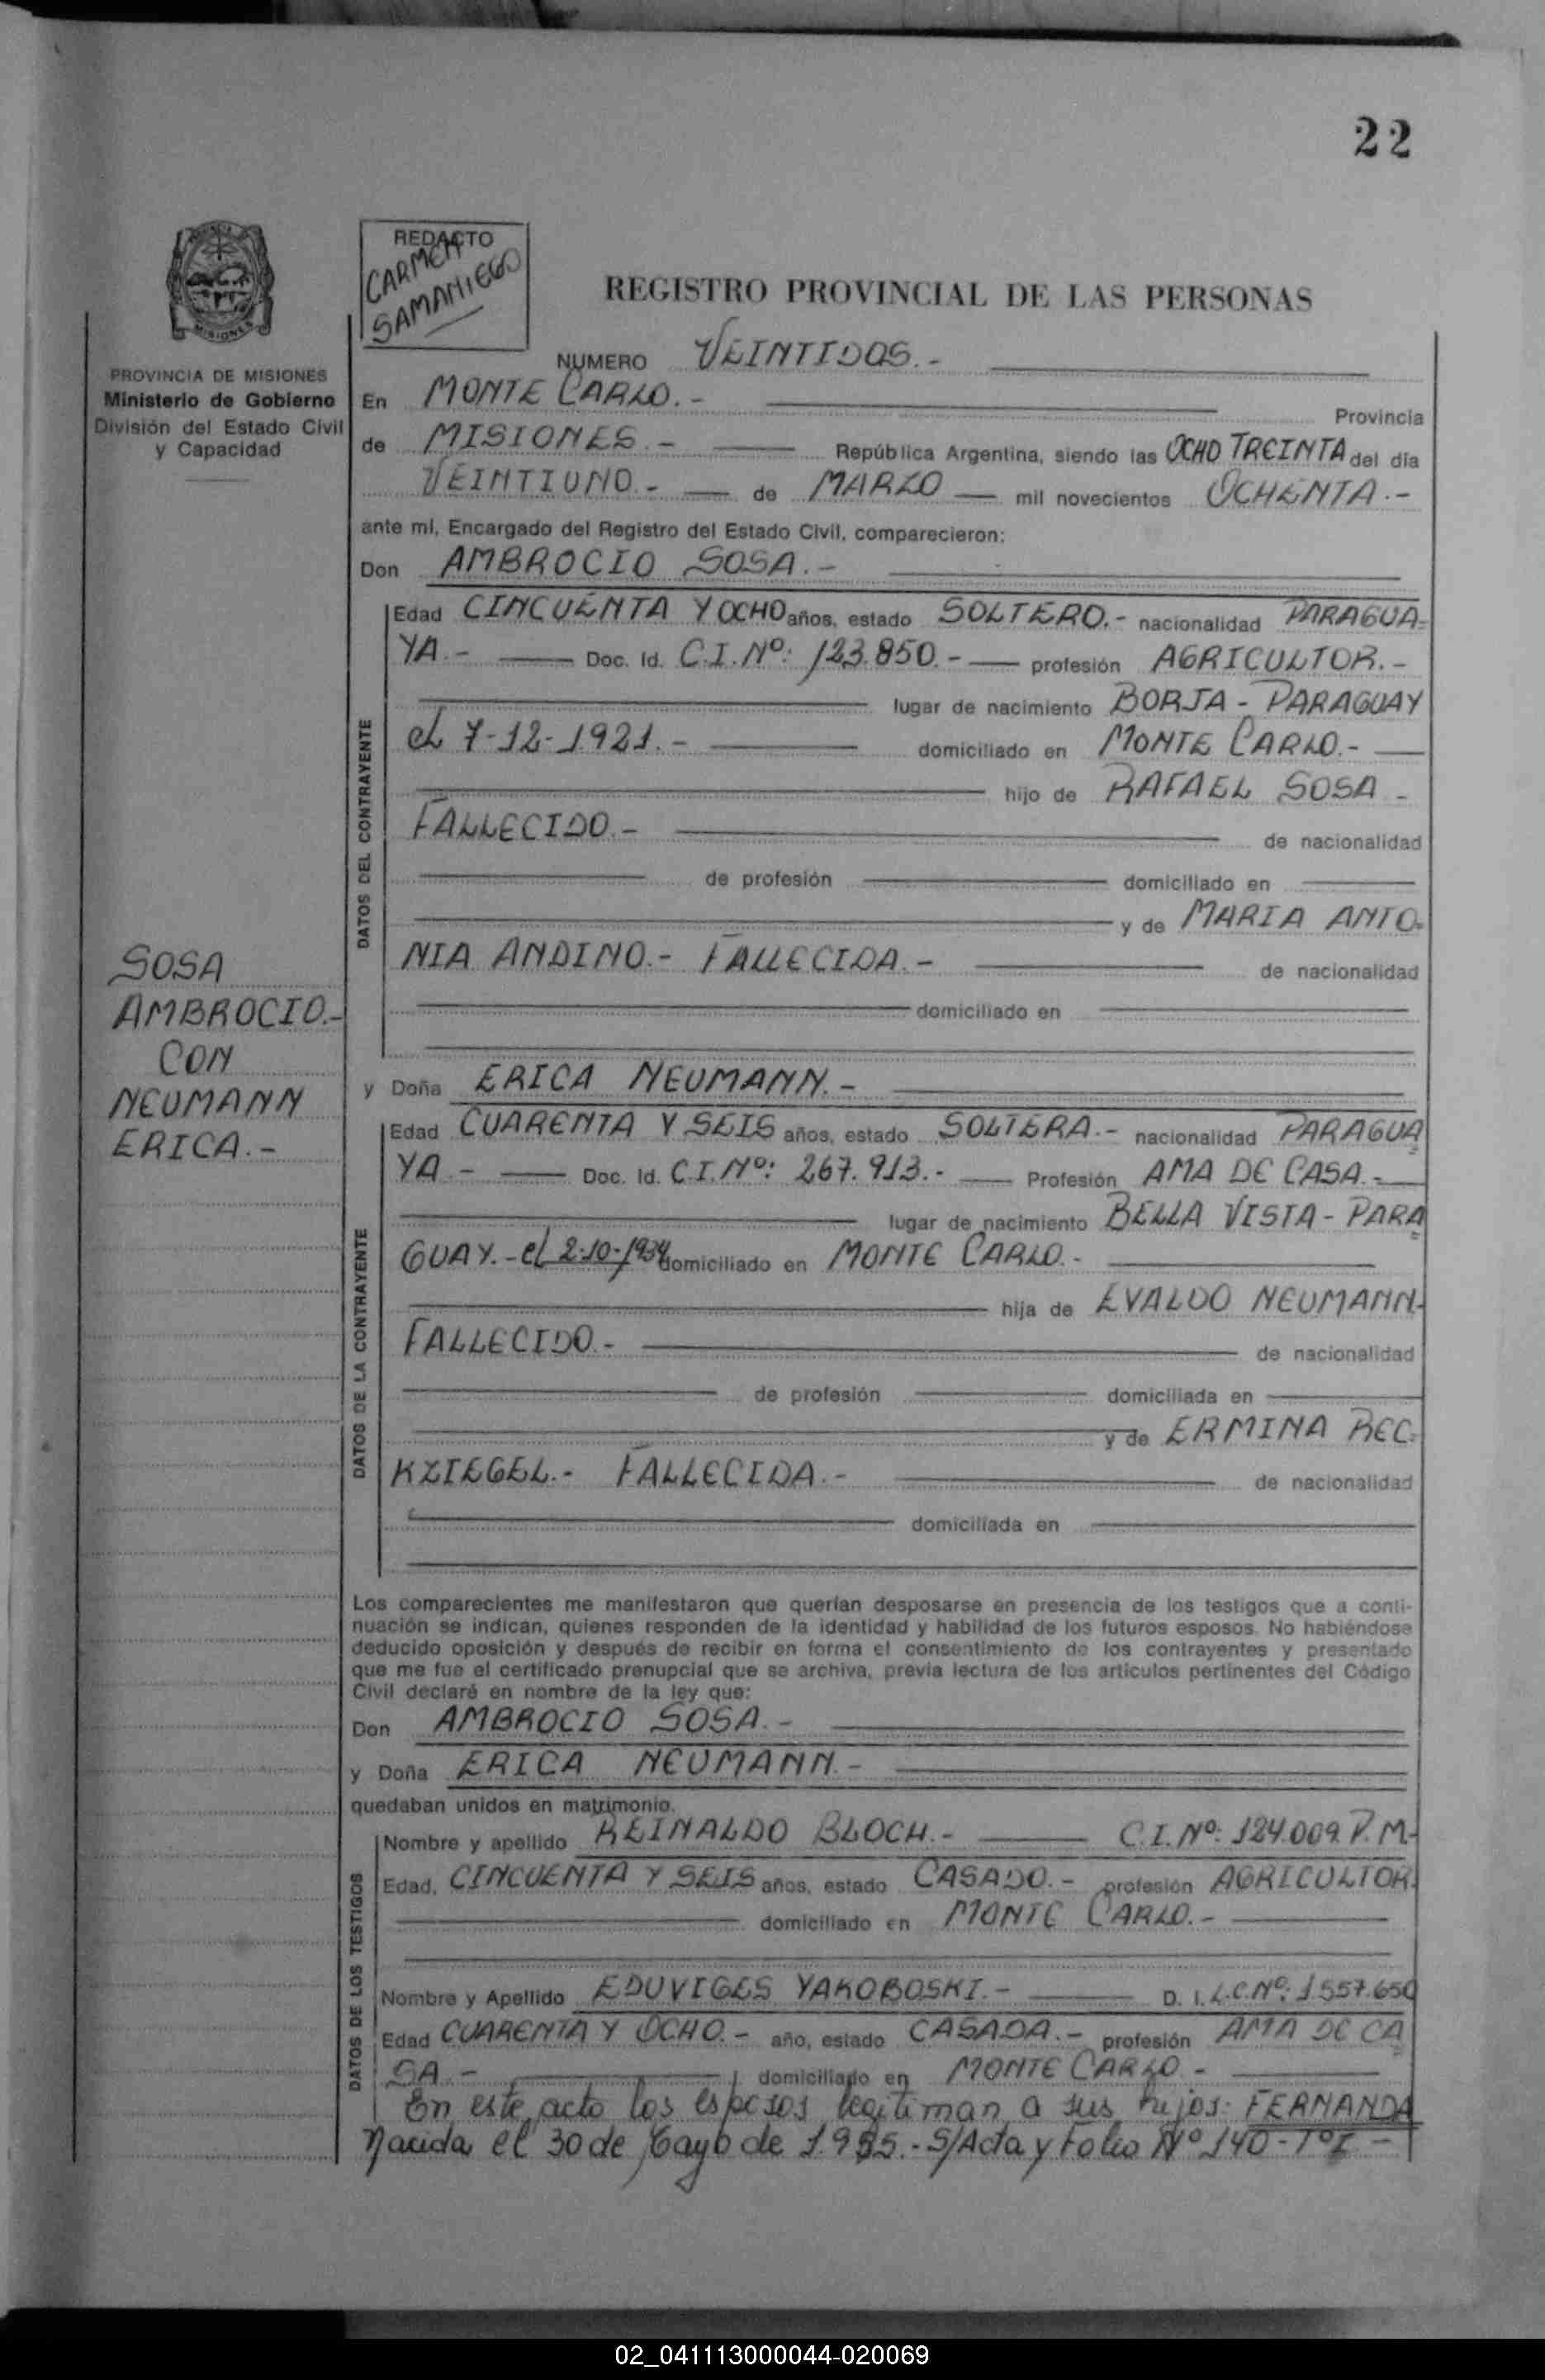 22
REDACTO
CARMEN
SAMANIEGO
REGISTRO PROVINCIAL DE LAS PERSONAS
MISIONES
PROVINCIA DE MISIONES
Ministerio de Gobierno
División del Estado Civil
y Capacidad
NUMERO VEINTIDOS.-
En MONTE CARLO.- Provincia
de MISIONES.- República Argentina, siendo las OCHO TREINTA del día
VEINTIUNO.- de MARZO mil novecientos OCHENTA.-
ante mi, Encargado del Registro del Estado Civil, comparecieron:
Don AMBROCIO SOSA.-
DATOS DEL CONTRAYENTE
Edad CINCUENTA Y OCHO años, estado SOLTERO.- nacionalidad PARAGUA-
YA.- Doc. Id. C.I.Nº: 123.850.- profesión AGRICULTOR.-
lugar de nacimiento BORJA - PARAGUAY
el 7-12-1921.- domiciliado en MONTE CARLO.-
hijo de RAFAEL SOSA -
FALLECIDO.- de nacionalidad
de profesión domiciliado en
y de MARIA ANTO-
NIA ANDINO.- FALLECIDA.- de nacionalidad
domiciliado en
SOSA
AMBROCIO.-
CON
NEUMANN
ERICA.-
y Doña ERICA NEUMANN.-
DATOS DE LA CONTRAYENTE
Edad CUARENTA Y SEIS años, estado SOLTERA.- nacionalidad PARAGUA
YA.- Doc. Id. C.I.Nº: 267.913.- Profesión AMA DE CASA.-
lugar de nacimiento BELLA VISTA - PARA
GUAY.- el 2-10-1934 domiciliado en MONTE CARLO.-
hija de EVALDO NEUMANN-
FALLECIDO.- de nacionalidad
de profesión domiciliada en
y de ERMINA REC-
KZIEGEL.- FALLECIDA.- de nacionalidad
domiciliada en
Los comparecientes me manifestaron que querían desposarse en presencia de los testigos que a conti-
nuación se indican, quienes responden de la identidad y habilidad de los futuros esposos. No habiéndose
deducido oposición y después de recibir en forma el consentimiento de los contrayentes y presentado
que me fue el certificado prenupcial que se archiva, previa lectura de los artículos pertinentes del Código
Civil declaré en nombre de la ley que:
Don AMBROCIO SOSA.-
y Doña ERICA NEUMANN.-
quedaban unidos en matrimonio.
DATOS DE LOS TESTIGOS
Nombre y apellido REINALDO BLOCH.- C.I.Nº: 124.009. P.M-
Edad, CINCUENTA Y SEIS años, estado CASADO.- profesión AGRICULTOR.
domiciliado en MONTE CARLO.-
Nombre y Apellido EDUVIGES YAKOBOSKI.- D. I. L.C.Nº: 1.557.650
Edad CUARENTA Y OCHO.- año, estado CASADA.- profesión AMA DE CA
SA.- domiciliado en MONTE CARLO.-
En este acto los esposos legitiman a sus hijos: FERNANDA
Nacida el 30 de Mayo de 1.955.- S/Acta y Folio Nº 140 - Tº I -
02_041113000044-020069